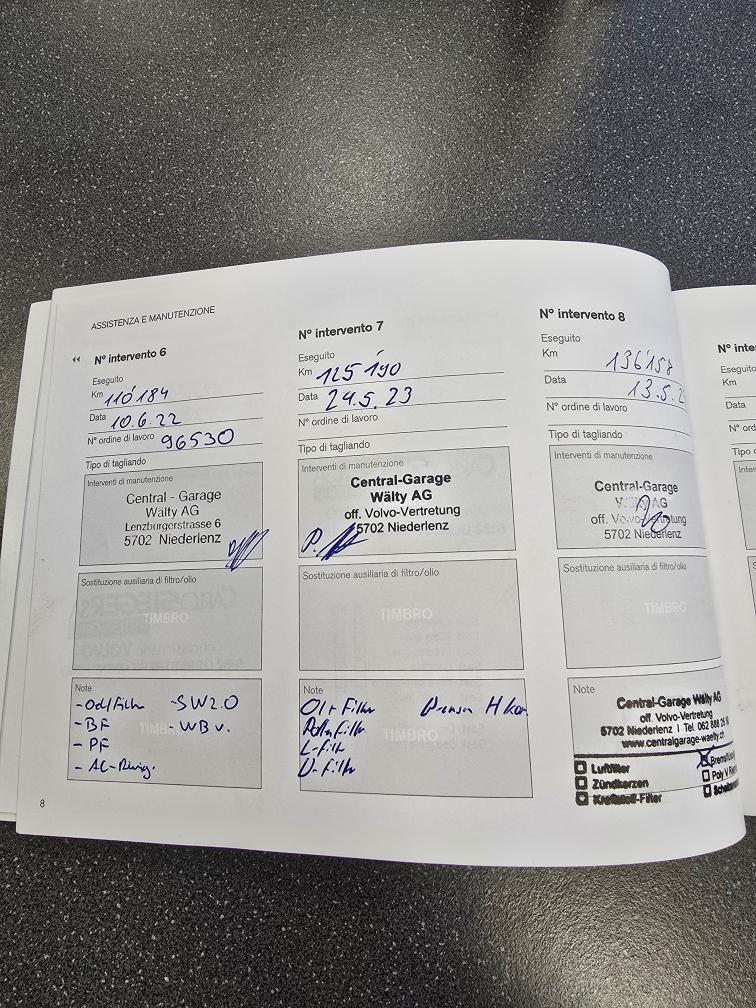 ASSISTENZA E MANUTENZIONE
N° intervento 6
Eseguito
Km 110'184
Data 10.6.22
N° ordine di lavoro 96530
Tipo di tagliando
Interventi di manutenzione
Central - Garage
Wälty AG
Lenzburgerstrasse 6
5702 Niederlenz
Sostituzione ausiliaria di filtro/olio
TIMBRO
Note
TIMBRO
- SW2.0
- BF
- WB v.
- PF
8
N° intervento 7
Eseguito
Km 125'190
Data 24.5.23
N° ordine di lavoro
Tipo di tagliando
Interventi di manutenzione
Central-Garage
Wälty AG
off. Volvo-Vertretung
5702 Niederlenz
P.
Sostituzione ausiliaria di filtro/olio
TIMBRO
Note
TIMBRO
Filter
Filter
L-Filt
N° intervento 8
Eseguito
Km 136'158
Data 13.5.2
N° ordine di lavoro
Tipo di tagliando
Interventi di manutenzione
Central-Garage
Wälty AG
off. Volvo-Vertretung
5702 Niederlenz
Sostituzione ausiliaria di filtro/olio
TIMBRO
Note
Central-Garage Wälty AG
off. Volvo-Vertretung
5702 Niederlenz | Tel. 062 888
www.centralgarage-waelty.ch
Luftfilter
Zündkerzen
Kraftstoff-Filter
Poly V
N° inte
Eseguito
Km
Data
N° ord
Tipo d